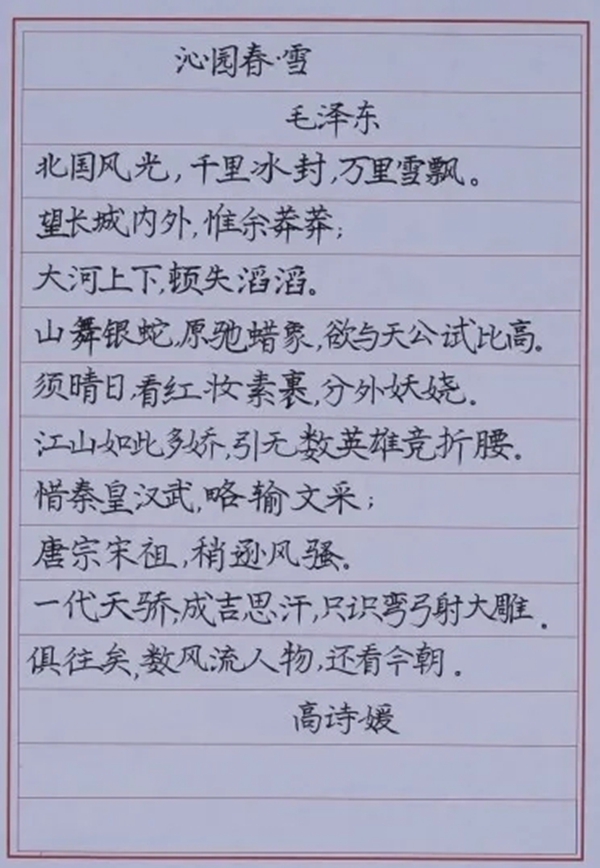 沁园春·雪
毛泽东
北国风光,千里冰封,万里雪飘。
望长城内外,惟余莽莽;
大河上下,顿失滔滔。
山舞银蛇,原驰蜡象,欲与天公试比高。
须晴日,看红妆素裹,分外妖娆。
江山如此多娇,引无数英雄竞折腰。
惜秦皇汉武,略输文采;
唐宗宋祖,稍逊风骚。
一代天骄,成吉思汗,只识弯弓射大雕.
俱往矣,数风流人物,还看今朝。
高诗媛